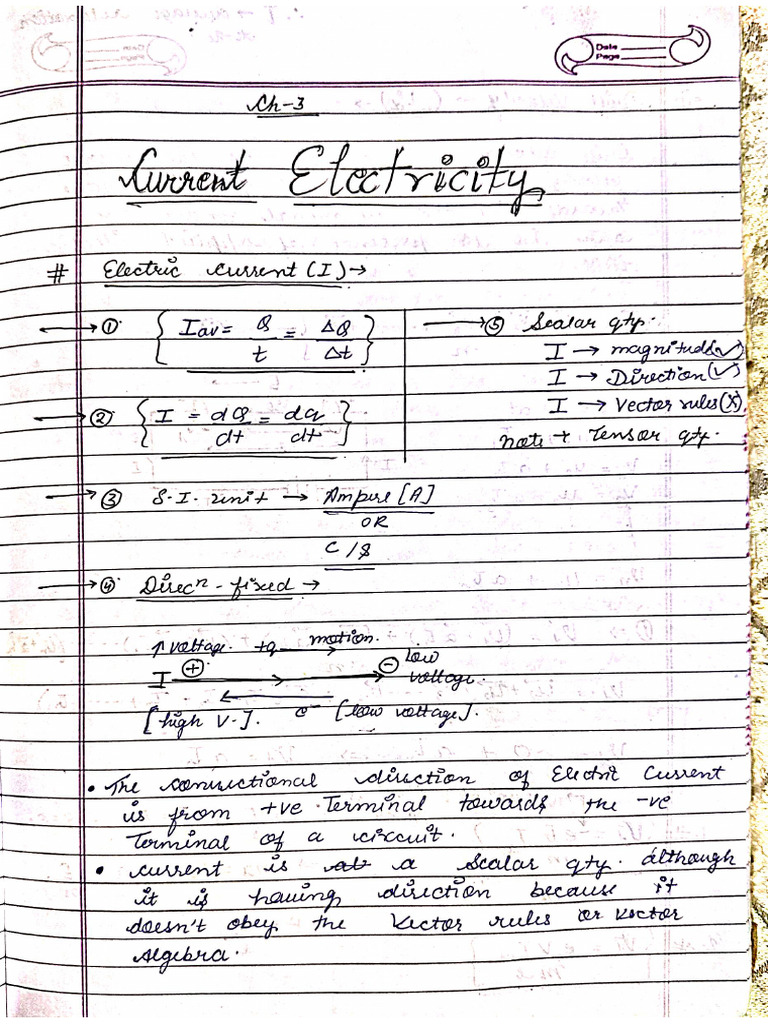 Date
Page
Ch-3
Current Electricity
# Electric current (I) →
→ ① { Iav = Q/t = ΔQ/Δt }
→ ② { I = dQ/dt = dq/dt }
→ ③ S.I. unit → Ampere [A]
OR
C/S
→ ④ Direcⁿ - fixed →
→ ⑤ Scalar qty.
I → magnitude (✓)
I → Direction (✓)
I → Vector rules (X)
Note → Tensor qty.
↑ voltage. +q motion.
I ⊕ ⊖ low voltage.
[high V.]. e⁻ [low voltage].
• The convectional direction of Electric Current
is from +ve Terminal towards the -ve
Terminal of a circuit.
• current is a scalar qty. although
it is having direction because it
doesn't obey the Vector rules or vector
Algebra.